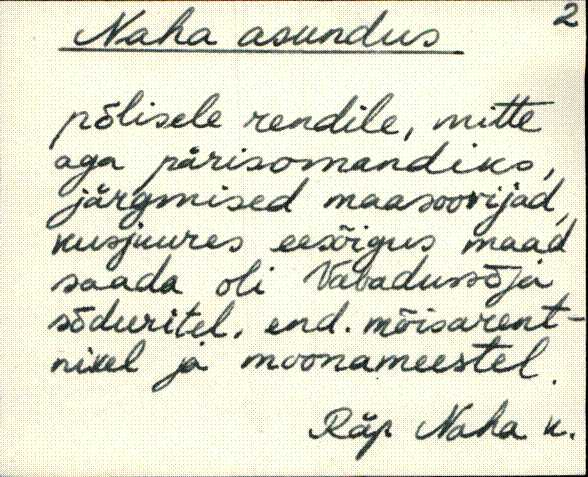 2
Naha asundus
põlisele rendile, mitte
aga pärisomandiks,
järgmised maasoovijad,
kusjuures eesõigus maad
saada oli Vabadussõja
sõduritel, end. mõisarent-
nikel ja moonameestel.
Räp Naha k.